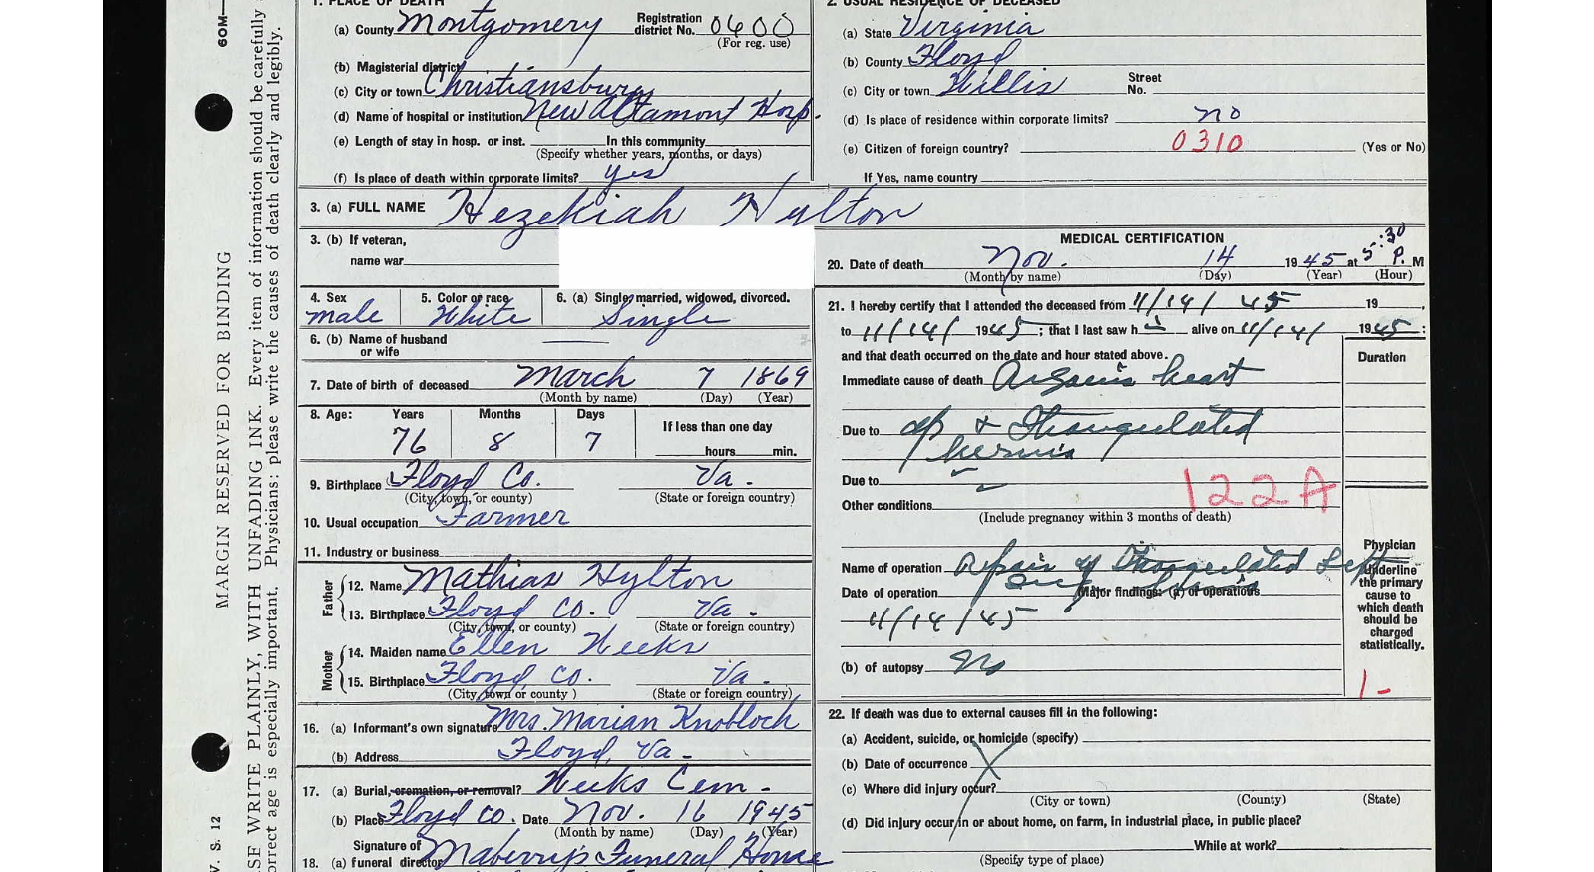 60M—
MARGIN RESERVED FOR BINDING
SE WRITE PLAINLY, WITH UNFADING INK. Every item of information should be carefully
orrect age is especially important. Physicians: please write the causes of death clearly and legibly.
V. S. 12
1. PLACE OF DEATH
(a) County Montgomery Registration district No. 0600
(For reg. use)
(b) Magisterial district
(c) City or town Christiansburg
(d) Name of hospital or institution New Altamont Hosp.
(e) Length of stay in hosp. or inst. In this community
(Specify whether years, months, or days)
(f) Is place of death within corporate limits? yes
2. USUAL RESIDENCE OF DECEASED
(a) State Virginia
(b) County Floyd
(c) City or town Willis Street No.
(d) Is place of residence within corporate limits? no
(e) Citizen of foreign country? 0310 (Yes or No)
If Yes, name country
3. (a) FULL NAME Hezekiah Hylton
3. (b) If veteran,
name war
4. Sex male
5. Color or race White
6. (a) Single, married, widowed, divorced. Single
6. (b) Name of husband
or wife
7. Date of birth of deceased March 7 1869
(Month by name) (Day) (Year)
8. Age: Years Months Days If less than one day
76 8 7 hours min.
9. Birthplace Floyd Co. Va.
(City, town, or county) (State or foreign country)
10. Usual occupation Farmer
11. Industry or business
Father
12. Name Mathias Hylton
13. Birthplace Floyd Co. Va.
(City, town, or county) (State or foreign country)
Mother
14. Maiden name Ellen Weeks
15. Birthplace Floyd Co. Va.
(City, town or county) (State or foreign country)
16. (a) Informant's own signature Mrs. Marian Knobloch
(b) Address Floyd, Va.
17. (a) Burial, cremation, or removal? Weeks Cem.
(b) Place Floyd Co. Date Nov. 16 1945
(Month by name) (Day) (Year)
Signature of
18. (a) funeral director Maberry's Funeral Home
MEDICAL CERTIFICATION
20. Date of death Nov. 14 1945 at 5:30 P. M
(Month by name) (Day) (Year) (Hour)
21. I hereby certify that I attended the deceased from 11/14/ 45 19
to 11/14/ 1945; that I last saw h alive on 11/14/ 1945:
and that death occurred on the date and hour stated above. Duration
Immediate cause of death Organic heart
Due to & Strangulated
hernia
Due to
Other conditions 122A
(Include pregnancy within 3 months of death)
Name of operation Repair of Strangulated
hernia
Date of operation Major findings: (a) of operations
11/14/45
(b) of autopsy No
Physician
Underline
the primary
cause to
which death
should be
charged
statistically.
1-
22. If death was due to external causes fill in the following:
(a) Accident, suicide, or homicide (specify)
(b) Date of occurrence
(c) Where did injury occur?
(City or town) (County) (State)
(d) Did injury occur in or about home, on farm, in industrial place, in public place?
While at work?
(Specify type of place)